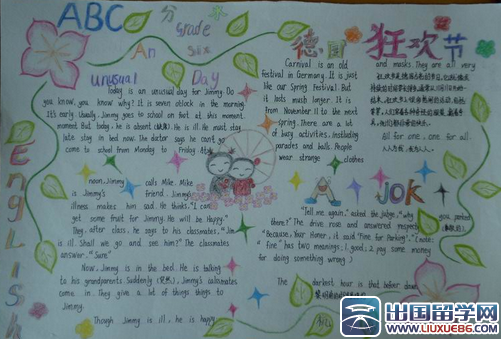 ABC
分
Grade
Six
An
unusual
Day
English
Today is an unusual day for Jimmy. Do
you know, you know why? It is seven o'clock in the morning
It's early. Usually Jimmy goes to school on foot at this moment
moment. But today, he is absent He is ill. He must stay
late stay in bed now. The doctor says he can't go
come to school from Monday to Friday
noon, Jimmy calls Mike. Mike
is Jimmy's friend. Jimmy's
illness makes him sad. He thinks. "I can
get some fruit for Jimmy. He will be happy."
They after class, he says to his classmates, "Jim
is ill. Shall we go and see him?" The classmates
answer. "Sure."
Now, Jimmy is in the bed. He is talking
to his grandparents Suddenly (突然), Jimmy's classmates
come in. They give a lot of things things to
Jimmy.
Though Jimmy is ill, he is happy.
德国狂欢节
Carnival is an old
Festival in Germany. It is just
like our Spring Festival. But
it lasts much longer. It is
from November 11 to the next
spring. There are a lot
of busy activities, including
parades and balls. People
wear strange clothes
and masks. They are all very
All for one, one for all.
人人为我,我为人人.
A JOK
"Tell me again," asked the judge, "why you parked
there?" The drive rose and answered respect
"Because, Your Honor, it said 'Fine for Parking'." (note:
"fine" has two meanings: 1. good; 2. pay some money
for doing something wrong)
The darkest hour is that before dawn
出国留学网
WWW.LIUXUE86.COM